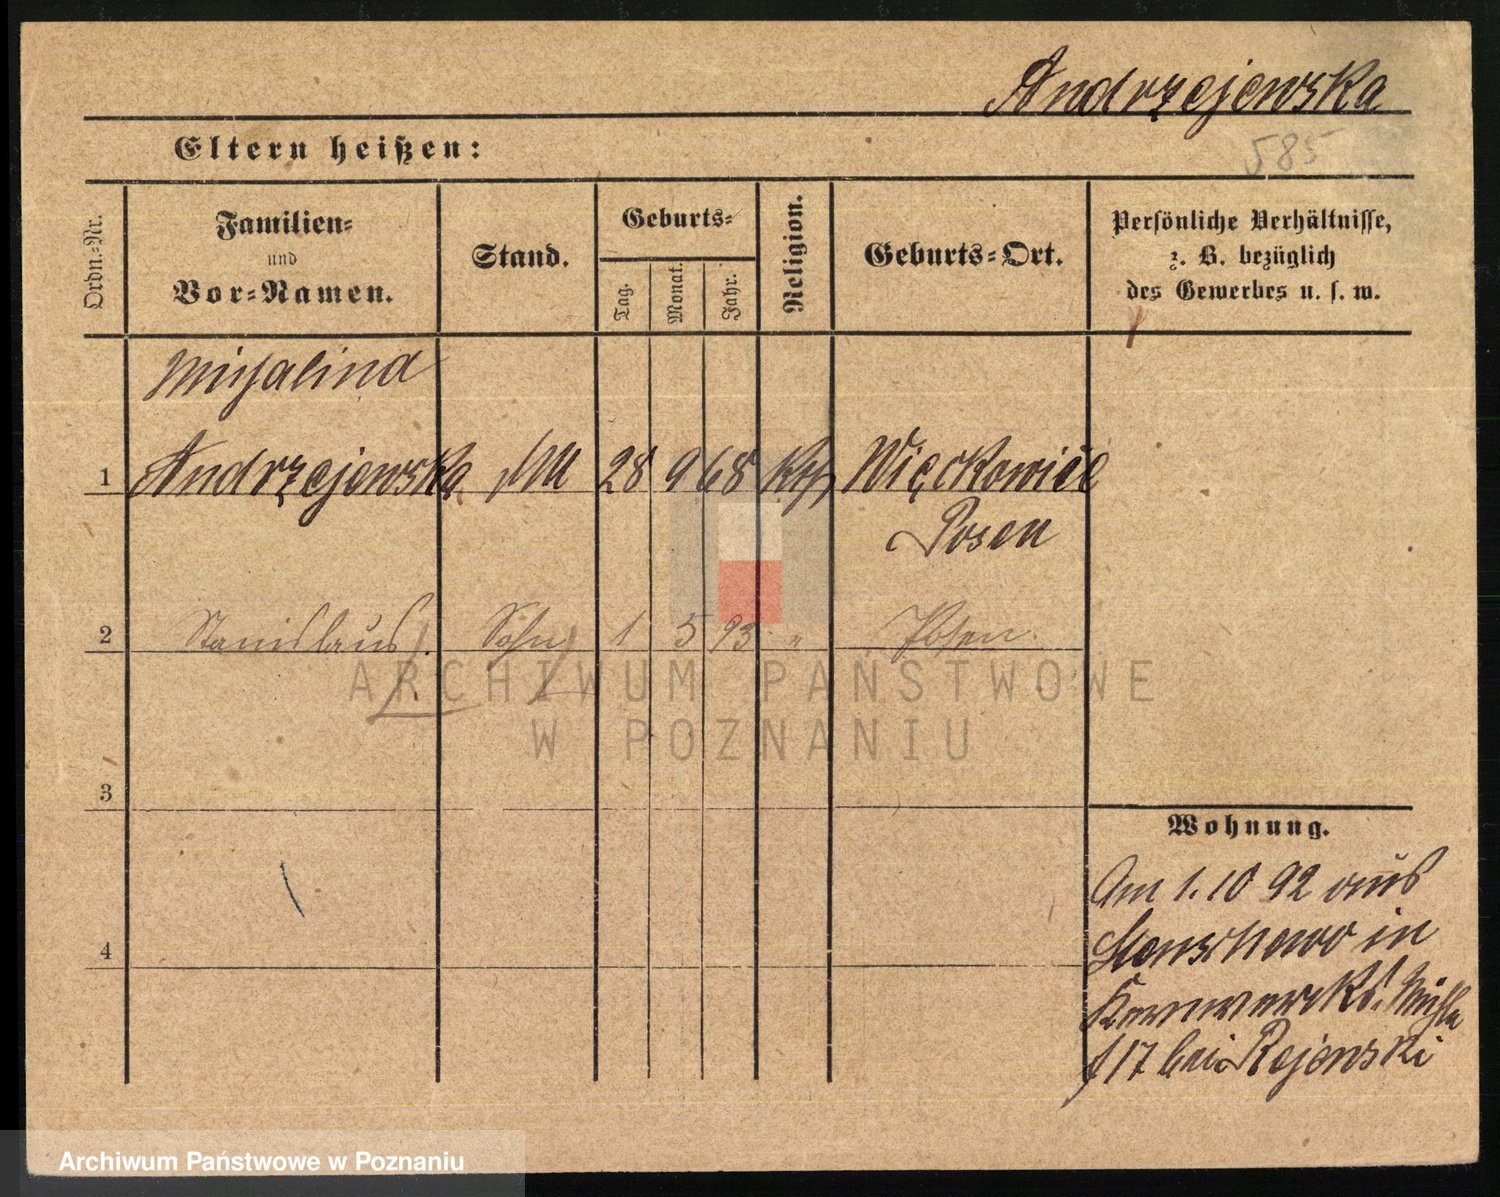 Andrzejewska
585
Eltern heißen:
Ordn.-Nr.
Familien-
und
Vor-Namen.
Stand.
Geburts-
Tag.
Monat.
Jahr.
Religion.
Geburts-Ort.
Persönliche Verhältnisse,
z. B. bezüglich
des Gewerbes u. s. w.
Michalina
1 Andrzejewska 28 9 68 Kth Więckowice
Posen
2 Stanislaus Sohn 1 5 93 " Posen
ARCHIWUM PAŃSTWOWE
W POZNANIU
3
Wohnung.
Am 1. 10 92 aus
in
4
Mühle
17 bei Rejewski
Archiwum Państwowe w Poznaniu